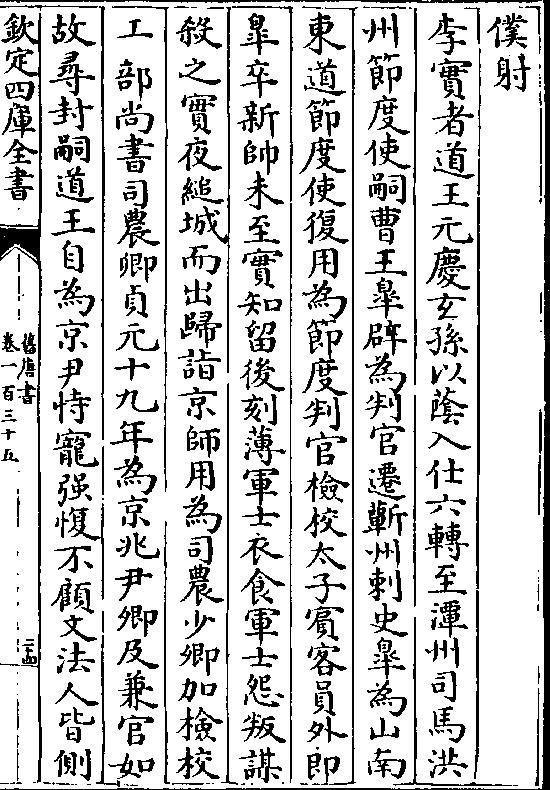 僕射
李實者道王元慶玄孫以蔭入仕六轉至潭州司馬洪
州節度使嗣曹王臯辟為判官遷蘄州刺史臯為山南
東道節度使復用為節度判官檢校太子賓客員外郎
臯卒新帥未至實知留後刻薄軍士衣食軍士怨叛謀
殺之實夜縋城而出歸詣京師用為司農少卿加檢校
工部尚書司農卿貞元十九年為京兆尹卿及兼官如
故尋封嗣道王自為京尹恃寵强愎不顧文法人皆側
欽定四庫全書
舊唐書
卷一百三十五
二十四